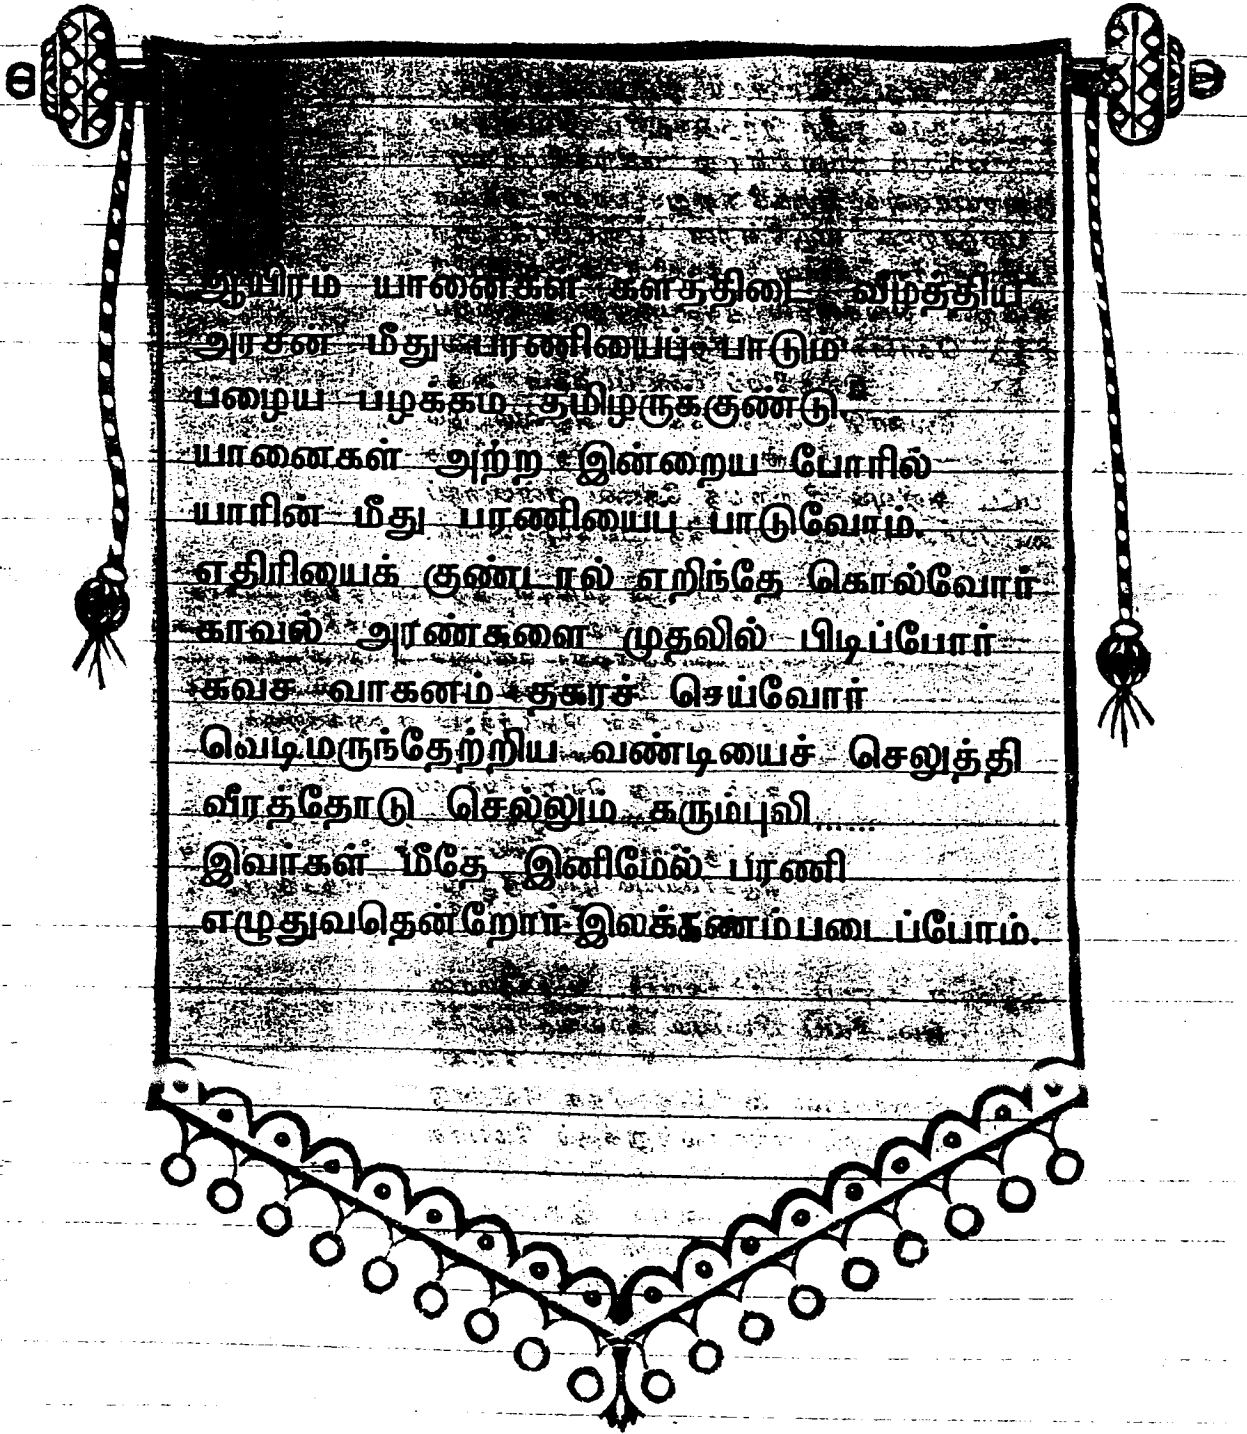 ஆயிரம் யானைகள் களத்திடை வீழ்த்திய
அரசன் மீது பரணியைப் பாடும்
பழைய பழக்கம் தமிழருக்குண்டு.
யானைகள் அற்ற இன்றைய போரில்
யாரின் மீது பரணியைப் பாடுவோம்.
எதிரியைக் குண்டால் எறிந்தே கொல்வோர்
காவல் அரண்களை முதலில் பிடிப்போர்
கவச வாகனம் தகரச் செய்வோர்
வெடிமருந்தேற்றிய வண்டியைச் செலுத்தி
வீரத்தோடு செல்லும் கரும்புலி......
இவர்கள் மீதே இனிமேல் பரணி
எழுதுவதென்றோர் இலக்கணம் படைப்போம்.